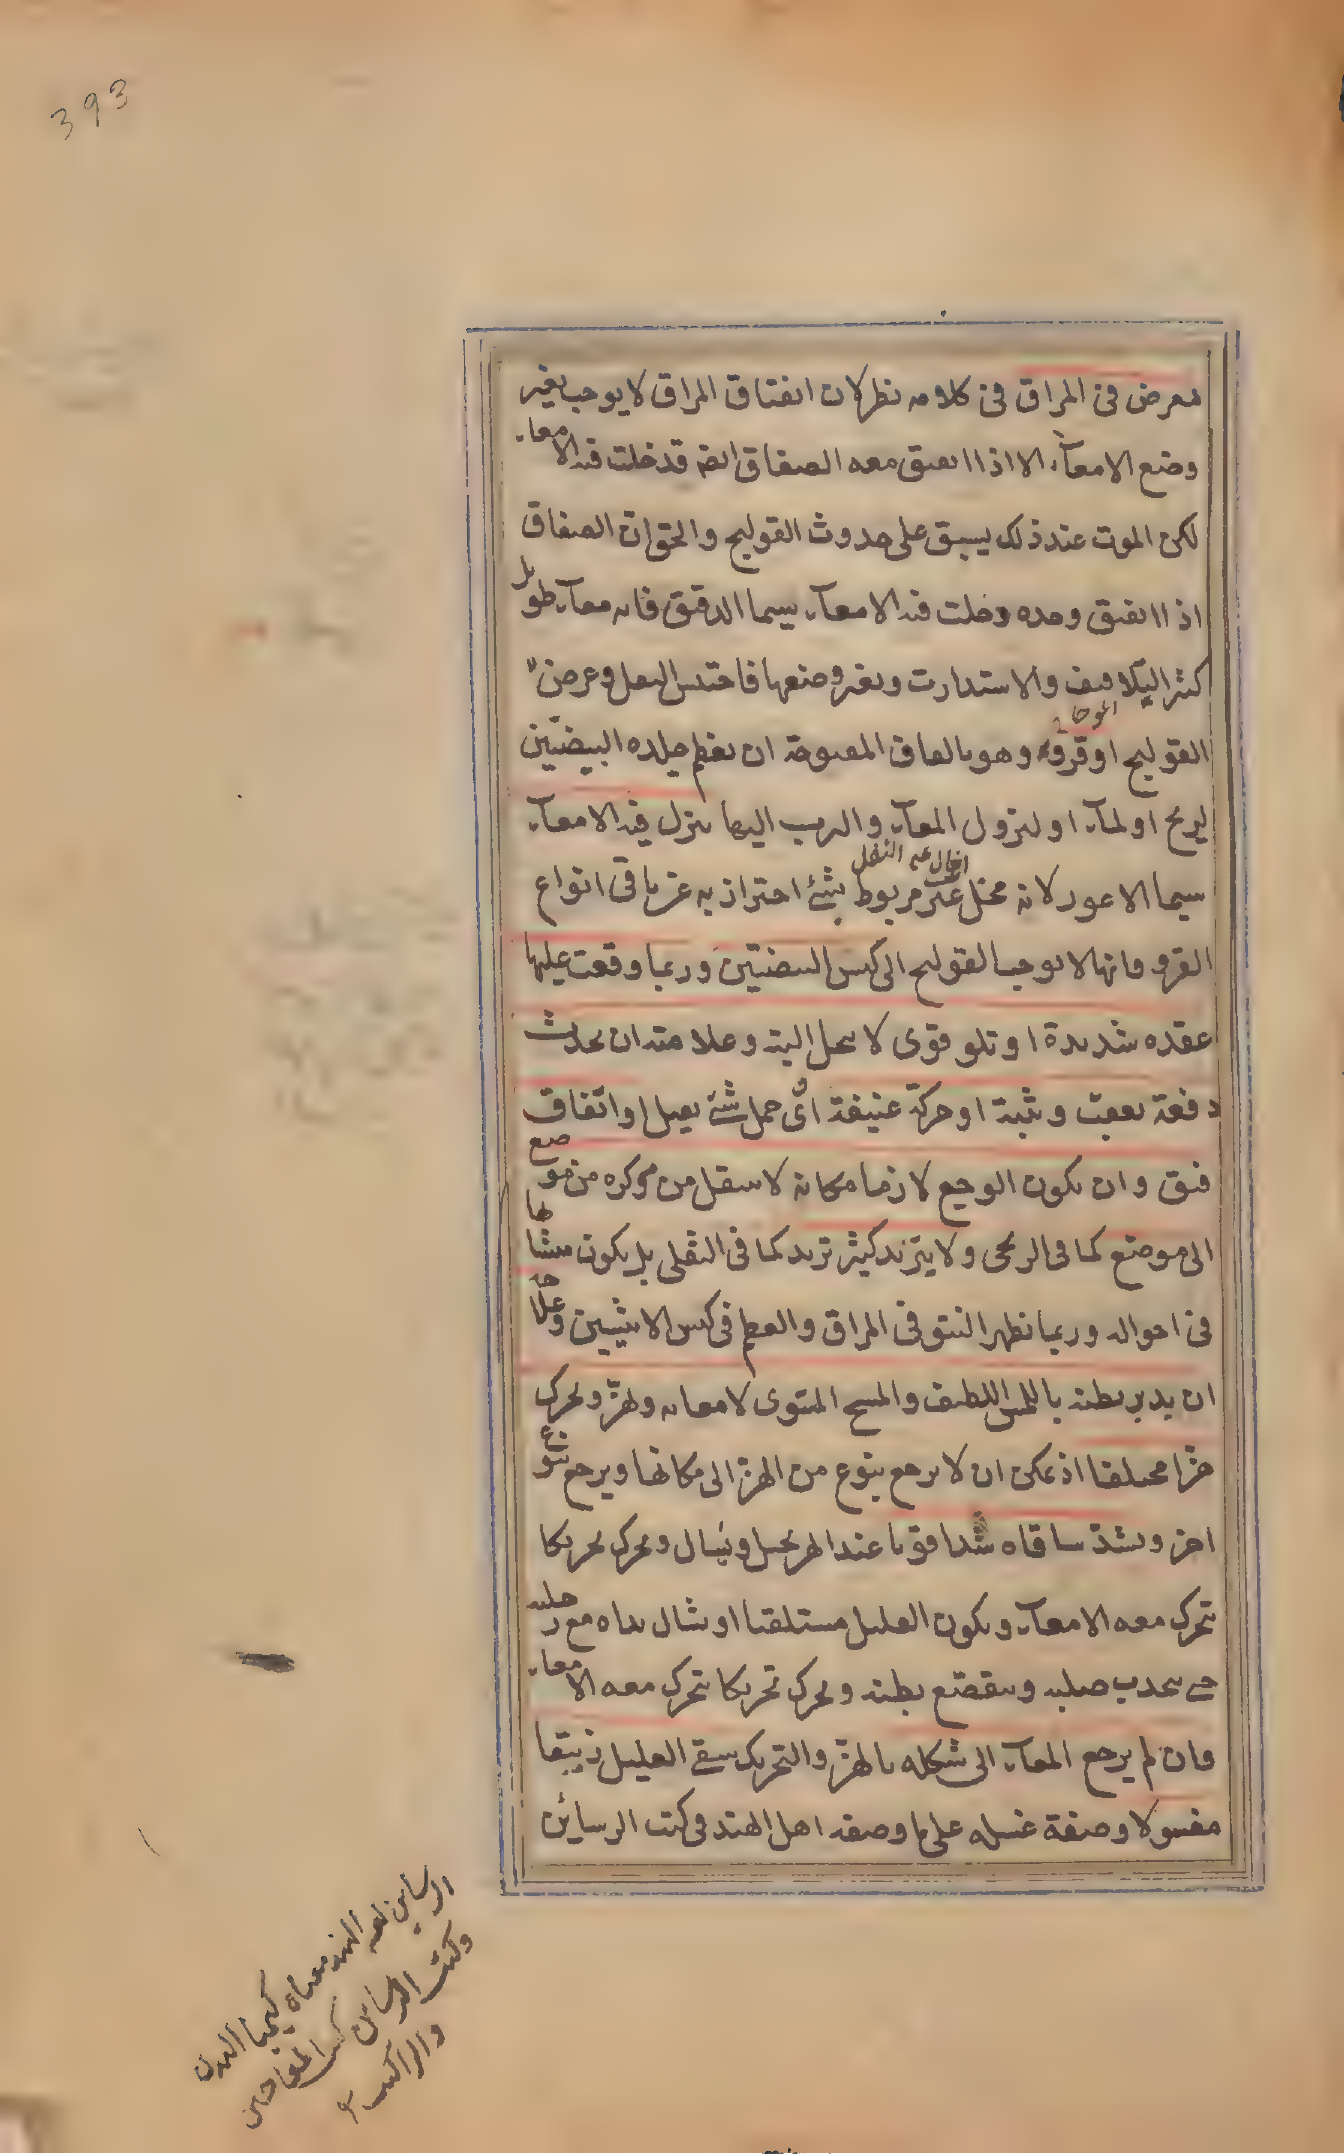 393
تعرض فى المراق فى كلامه نظر لان انفتاق المراق لا يوجب تغير
وضع الامعآء الا اذا انفتق معه الصفاق ايضه قد خلت فيه الامعاء
لكن الموت عند ذلك يسبق على حدوث القولنج والحق ان الصفاق
اذا انفتق وحده دخلت فيه الامعآء سيما الدقيق فانه معآء طويل
كثير التلافيف والاستدارت وتغير وضعها فاحتبس الثفل وعرض
القولنج او قرو وهو بالقاف المفتوحة ان يعظم جلده البيضتين
لريح او لمآء او لنزول المعآء والثرب اليها ينزل فيه الامعآء
سيما الاعور لانه مخلى غير مربوط بشئ احتراز به عن باقى انواع
القرو فانها لا يوجب القولنج الى كيس البيضتين وربما وقعت عليها
عقده شديدة او تلو قوى لا ينحل البتة وعلامته ان يحدث
دفعة بعقب وثبة او حركة عنيفة اى حمل شئ ثقيل او اتفاق
فتق وان يكون الوجع لازما مكانه لا ينتقل من مركزه من موضع
الى موضع كما فى الريحى ولا يتزيد كثير تزيد كما فى الثفلى بل يكون متشابها
فى احواله وربما يظهر النتو فى المراق والعظم فى كيس الانثيين وعلاجه
ان يدبر بطنه باللمس اللطيف والمسح المسوى لامعائه ويهز ويحرك
هزا مختلفا اذ يمكن ان لا يرجع بنوع من الهز الى مكانها ويرجع بنوع
اخر ويشد ساقاه شدا قويا عند الهز ويشال ويحرك تحريكا
يتحرك معه الامعآء ويكون العليل مستلقيا او يشال يداه مع رجليه
حتى يحدب صلبه ويتقصع بطنه ويحرك تحريكا يتحرك معه الامعاء
وان لم يرجع المعآء الى شكله بالهز والتحريك سقى العليل زيبقا
مغسولا وصفة غسله على ما وصفه اهل الهند فى كتب الرساين
الرساين لغة الهند معناه كيميا البدن
وكتب الرساين كتب المعاجين
والتراكيب